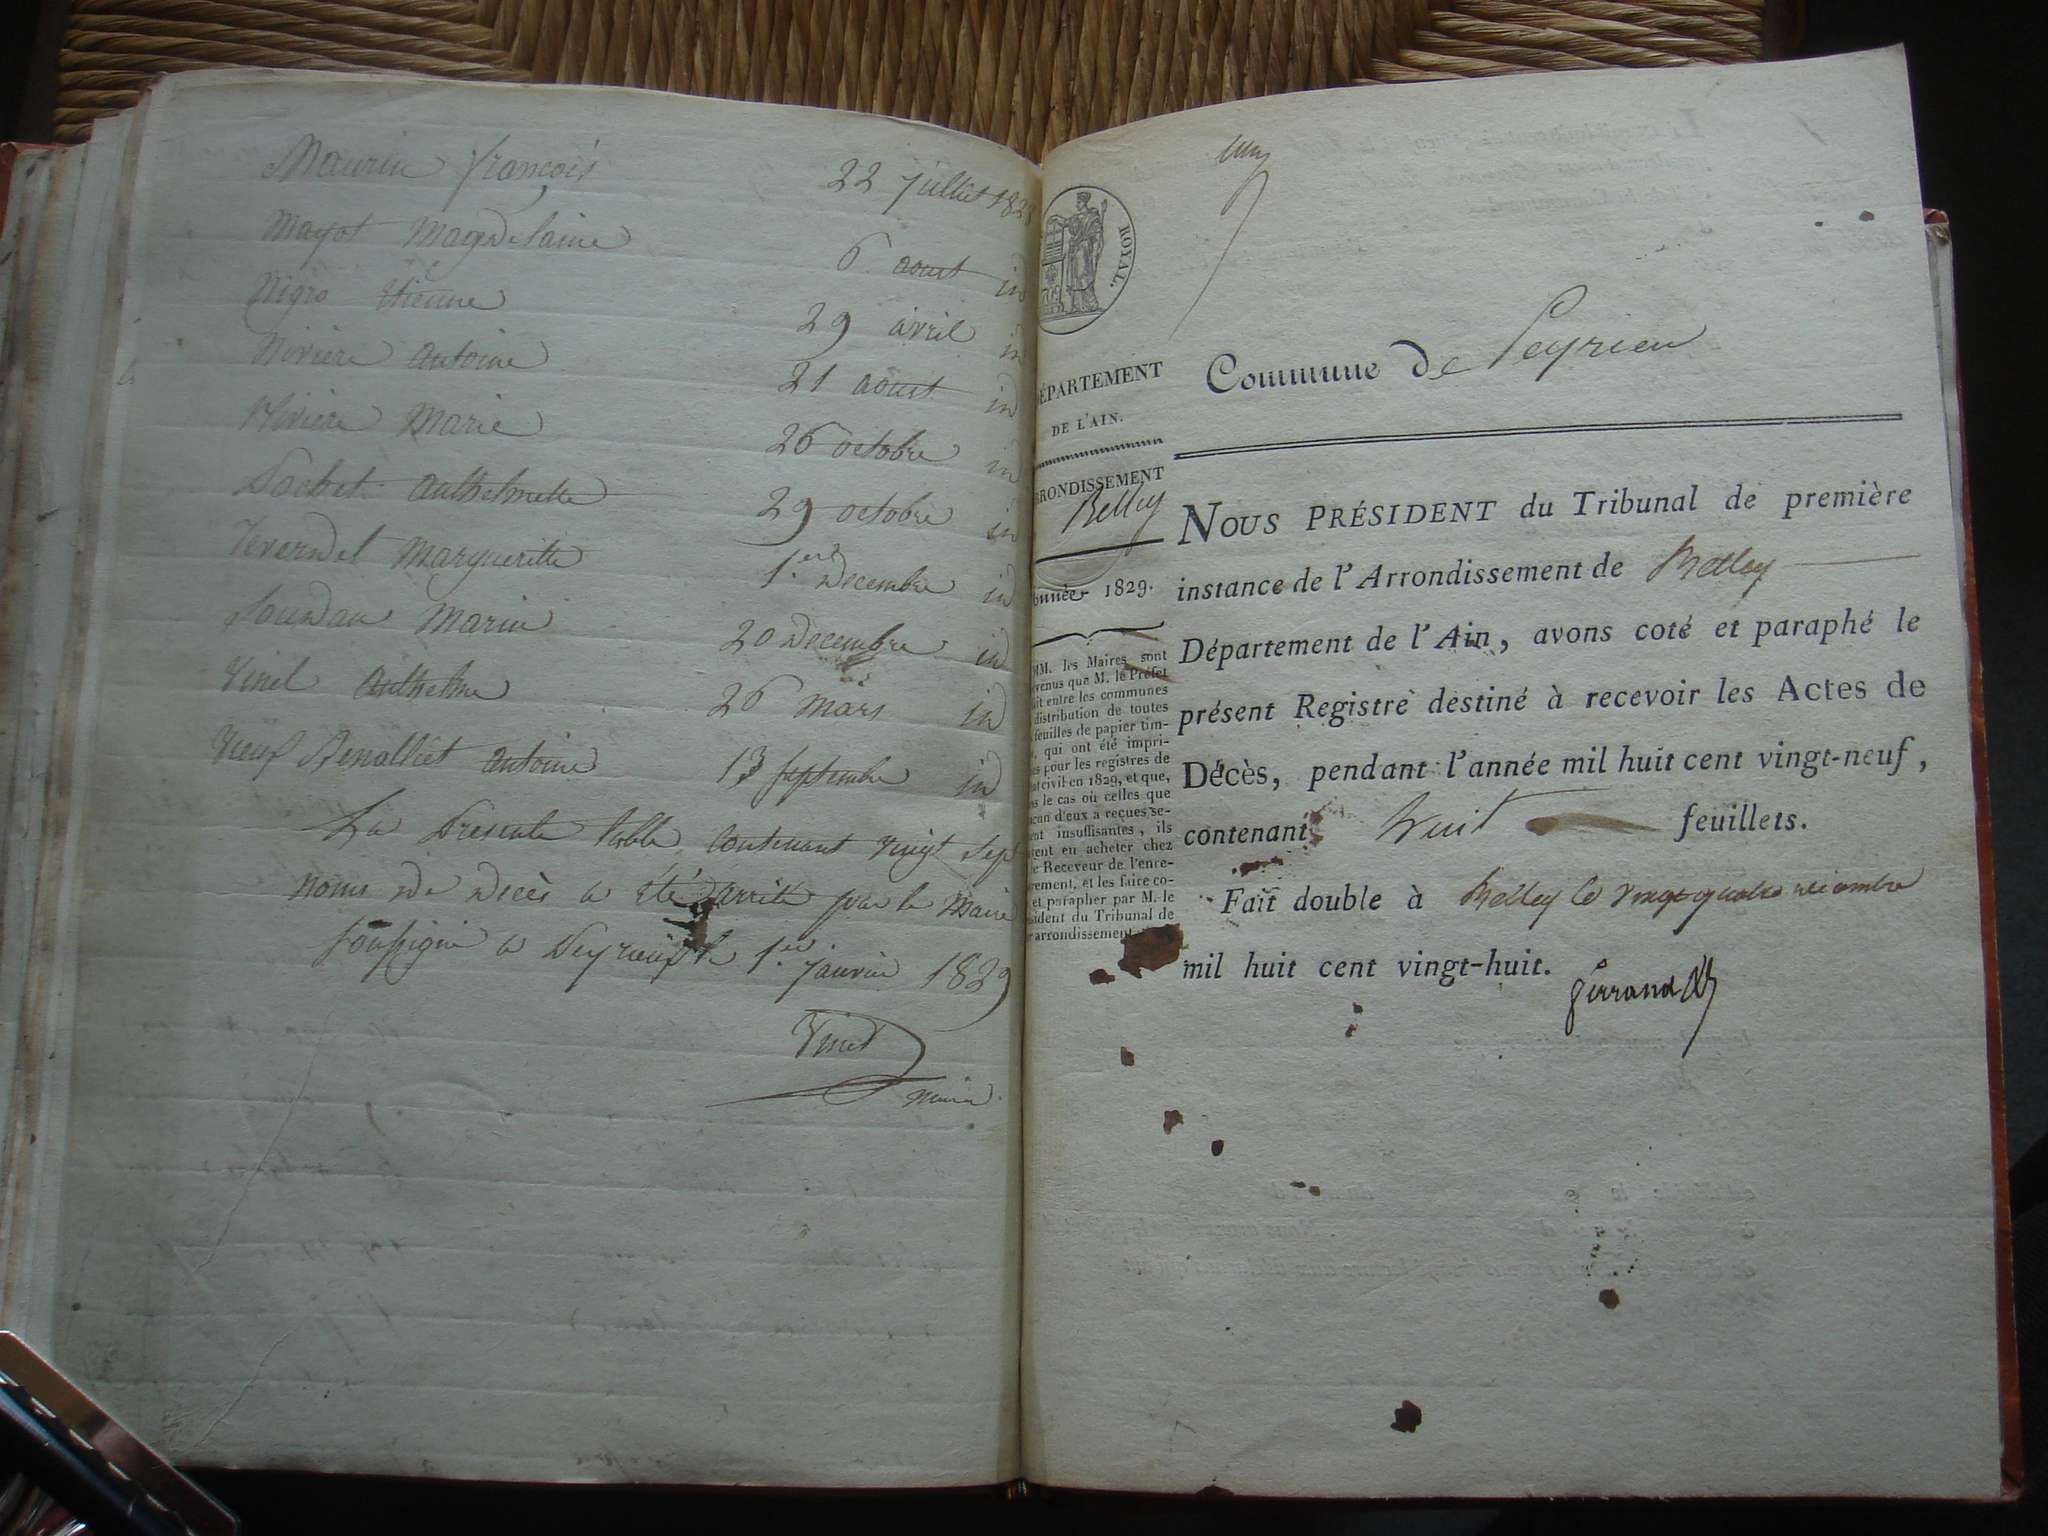 Maurin françois 22 juillet 1828
Mayot Magdelaine 6 aoust id
Nigro Etienne 29 avril id
Rivière antoine 21 aoust id
Rivière Marie 26 octobre id
Sochet Anthelmette 29 octobre id
Teverdel Margueritte 1.er Decembre id
Joudan Marin 20 Decembre id
Vinel Anthelme 26 mars id
antoine 13 Septembre id
La Presente table contenant vingt sept
noms de Decès a été arrité par le Maire
soussigné a Peyrieu le 1.er janvier 1829
Vinel
Maire
ROYAL.
DÉPARTEMENT
DE L'AIN.
ARRONDISSEMENT
Belley
Année 1829.
MM. les Maires sont
venus que M. le Préfet
ait entre les communes
distribution de toutes
feuilles de papier tim-
qui ont été impri-
pour les registres de
civil en 1829, et que,
le cas où celles que
d'eux a reçues se-
insuffisantes, ils
en acheter chez
Receveur de l'enre-
et les faire co-
et parapher par M. le
Président du Tribunal de
arrondissement
Commune de Peyrieu
NOUS PRÉSIDENT du Tribunal de première
instance de l'Arrondissement de Belley
Département de l'Ain, avons coté et paraphé le
présent Registre destiné à recevoir les Actes de
Décès, pendant l'année mil huit cent vingt-neuf,
contenant huit feuillets.
Fait double à Belley le vingt quatre decembre
mil huit cent vingt-huit.